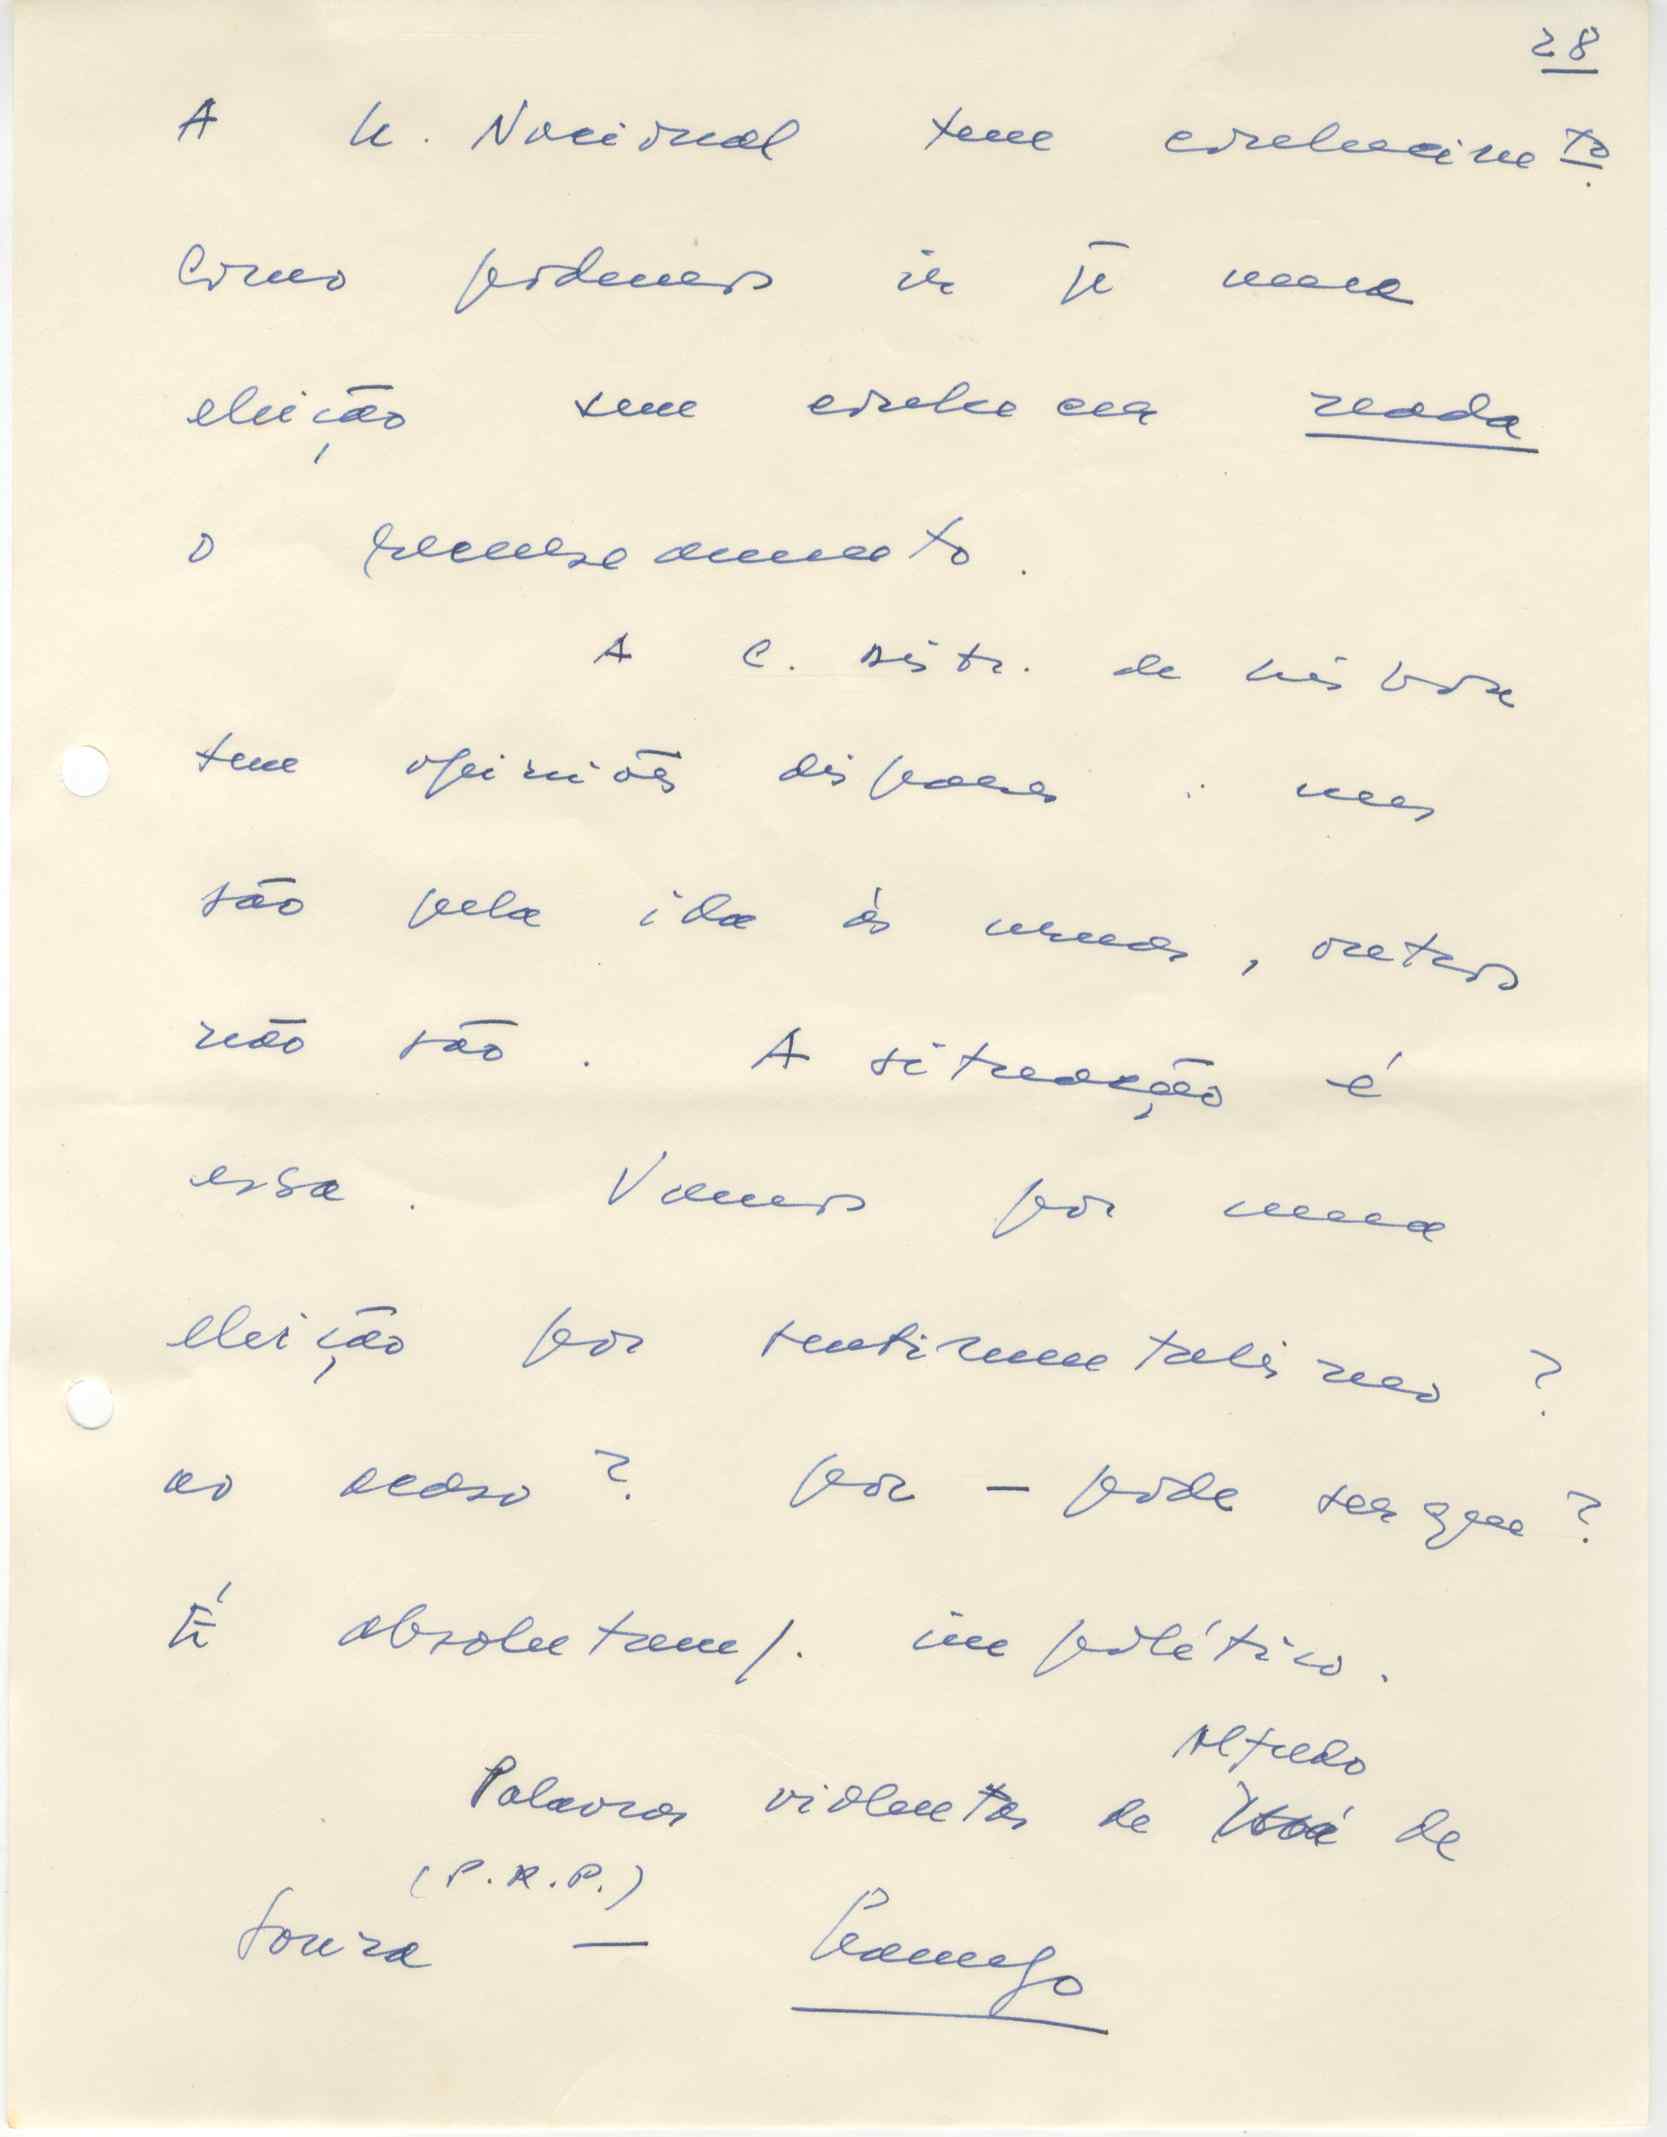 28
A U. Nacional tem conhecimento.
Como podemos ir p uma
eleição sem conhecer nada
o recenseamento.
A C. Distr. de Lisboa
tem opiniões dispares: uns
são pela ida às urnas, outros
não são. A situação é
essa. Vamos por uma
eleição por sentimentalismo?
ao acaso? por — pode ser que?
É absolutam/. impolítico.
Alfredo
Palavras violentas de José de
(P.R.P.)
Souza —